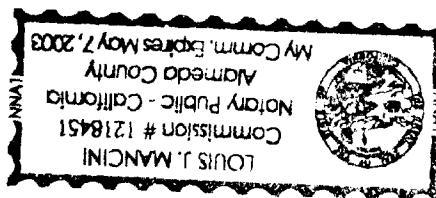 LOUIS J. MANCINI
Commission # 1218451
Notary Public - California
Alameda County
My Comm. Expires May 7, 2003
NNA1